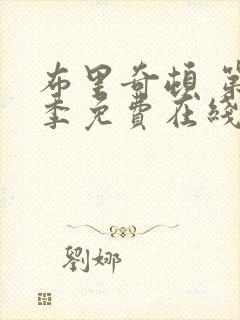 布里奇頓 第
季免費在綫
劉娜